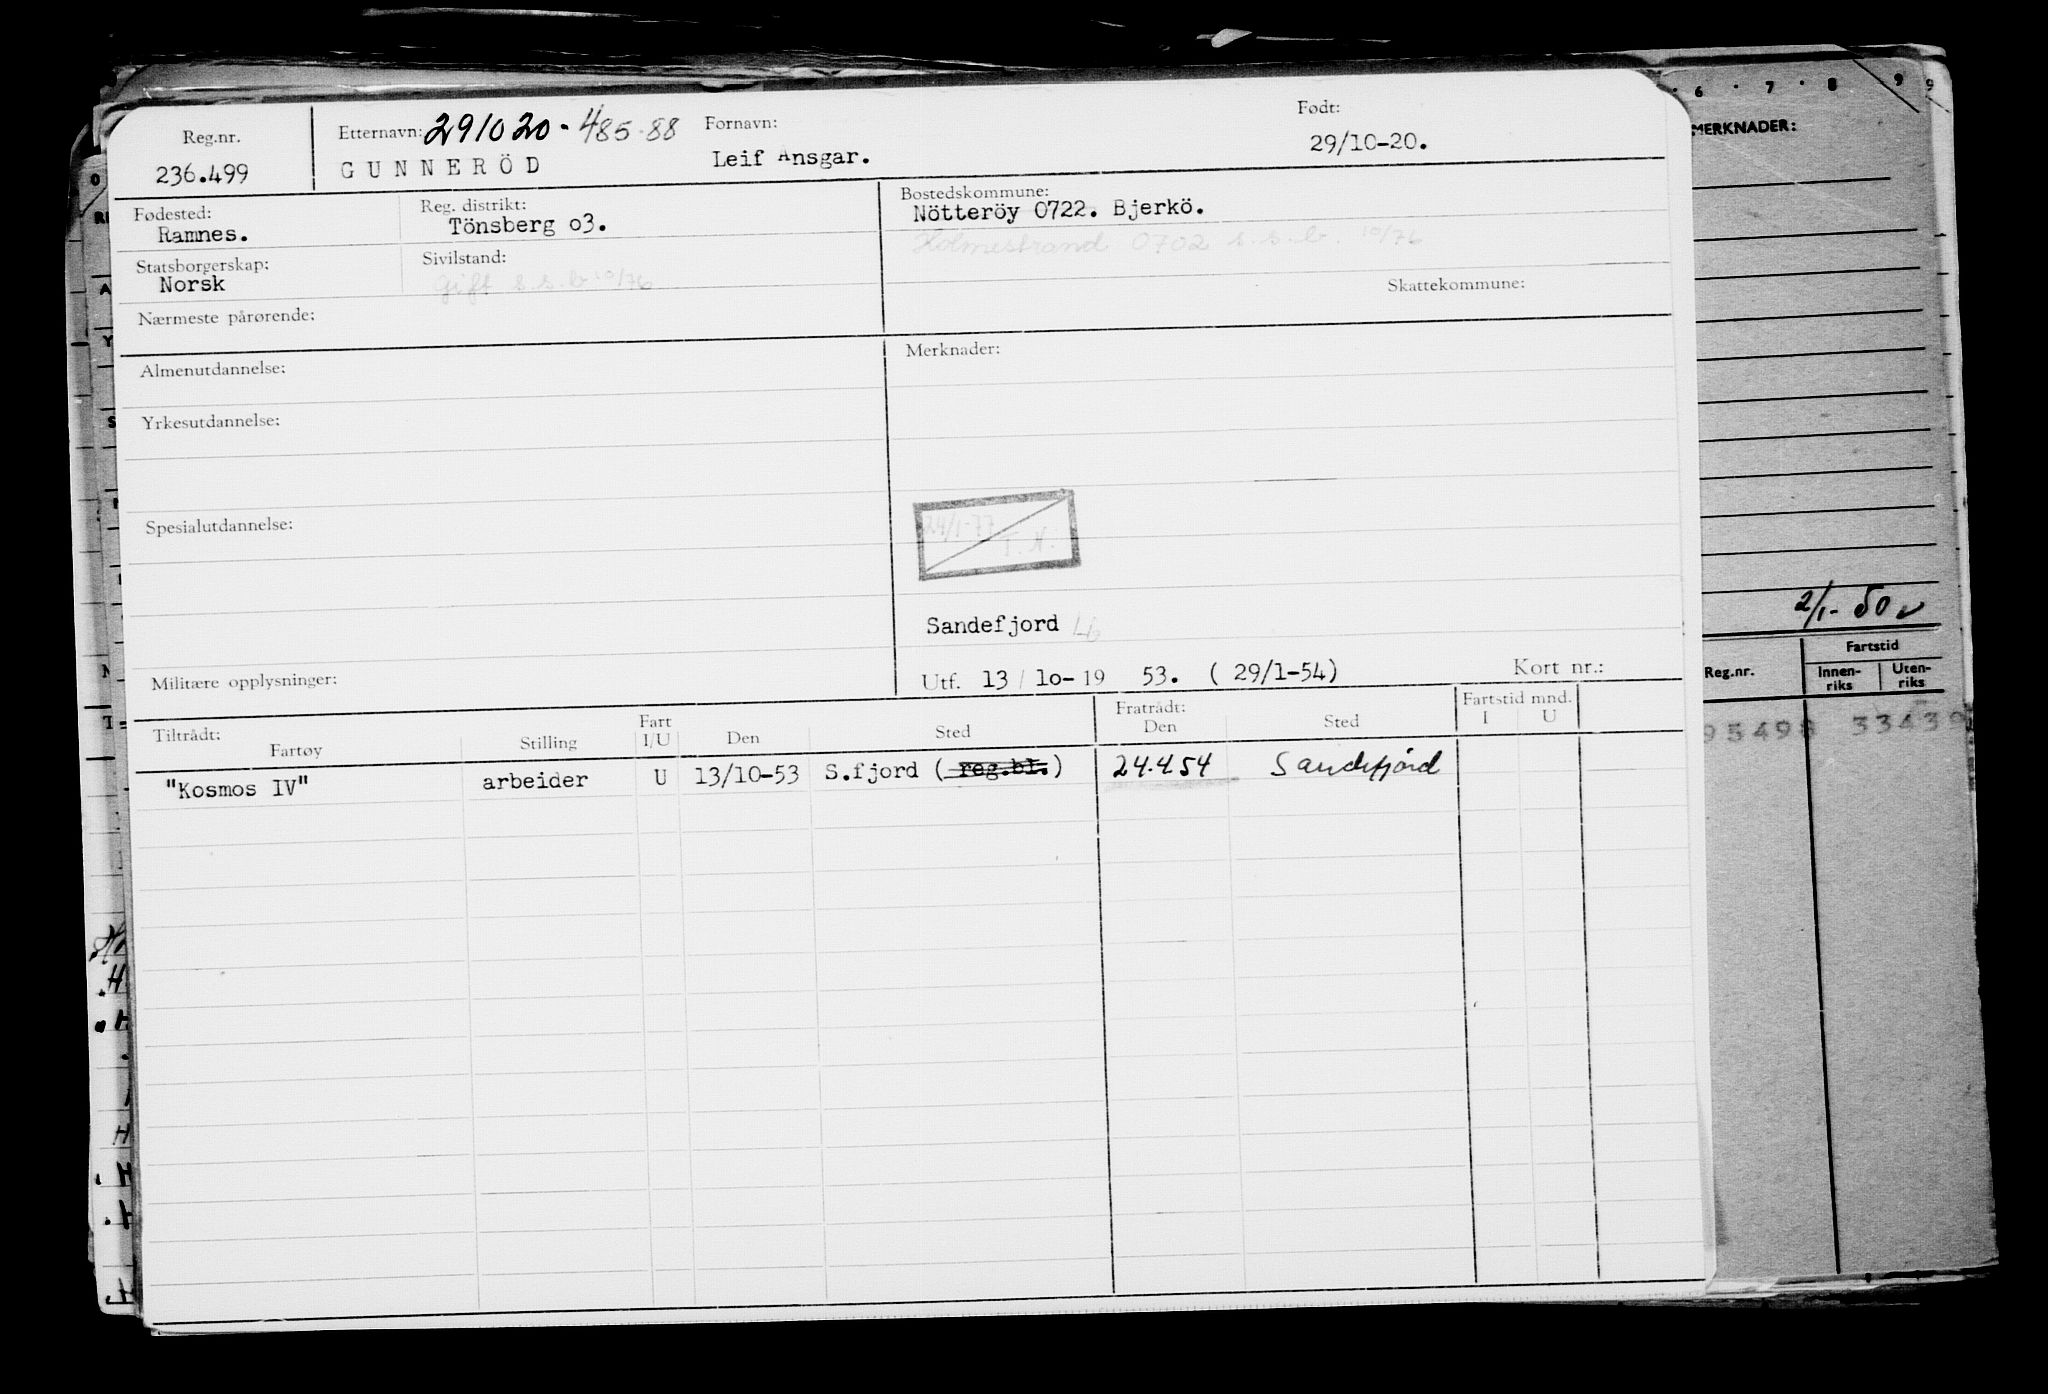 Reg.nr. Etternavn: 291020-485-88 Fornavn: Født:
236.499 GUNNERÖD Leif Ansgar. 29/10-20.
Fødested: Reg. distrikt: Bostedskommune:
Ramnes. Tönsberg o3. Nötteröy 0722. Bjerkö.
Holmestrand 0702 s.s.b. 10/76
Statsborgerskap: Sivilstand:
Norsk Gift s.s.b. 10/76 Skattekommune:
Nærmeste pårørende:
Almenutdannelse: Merknader:
Yrkesutdannelse:
Spesialutdannelse: 24/1-77
T.N.
Sandefjord
Militære opplysninger: Utf. 13/10-19 53. (29/1-54) Kort nr.:
Tiltrådt: Fart Fratrådt: Fartstid mnd.
Fartøy Stilling I/U Den Sted Den Sted I U
"Kosmos IV" arbeider U 13/10-53 S.fjord (reg.bl.) 24.4.54 Sandefjord
6 . 7 . 8 9 9
MERKNADER:
2/1-50
Fartstid
Reg.nr. Innen-riks Uten-riks
95498 33439